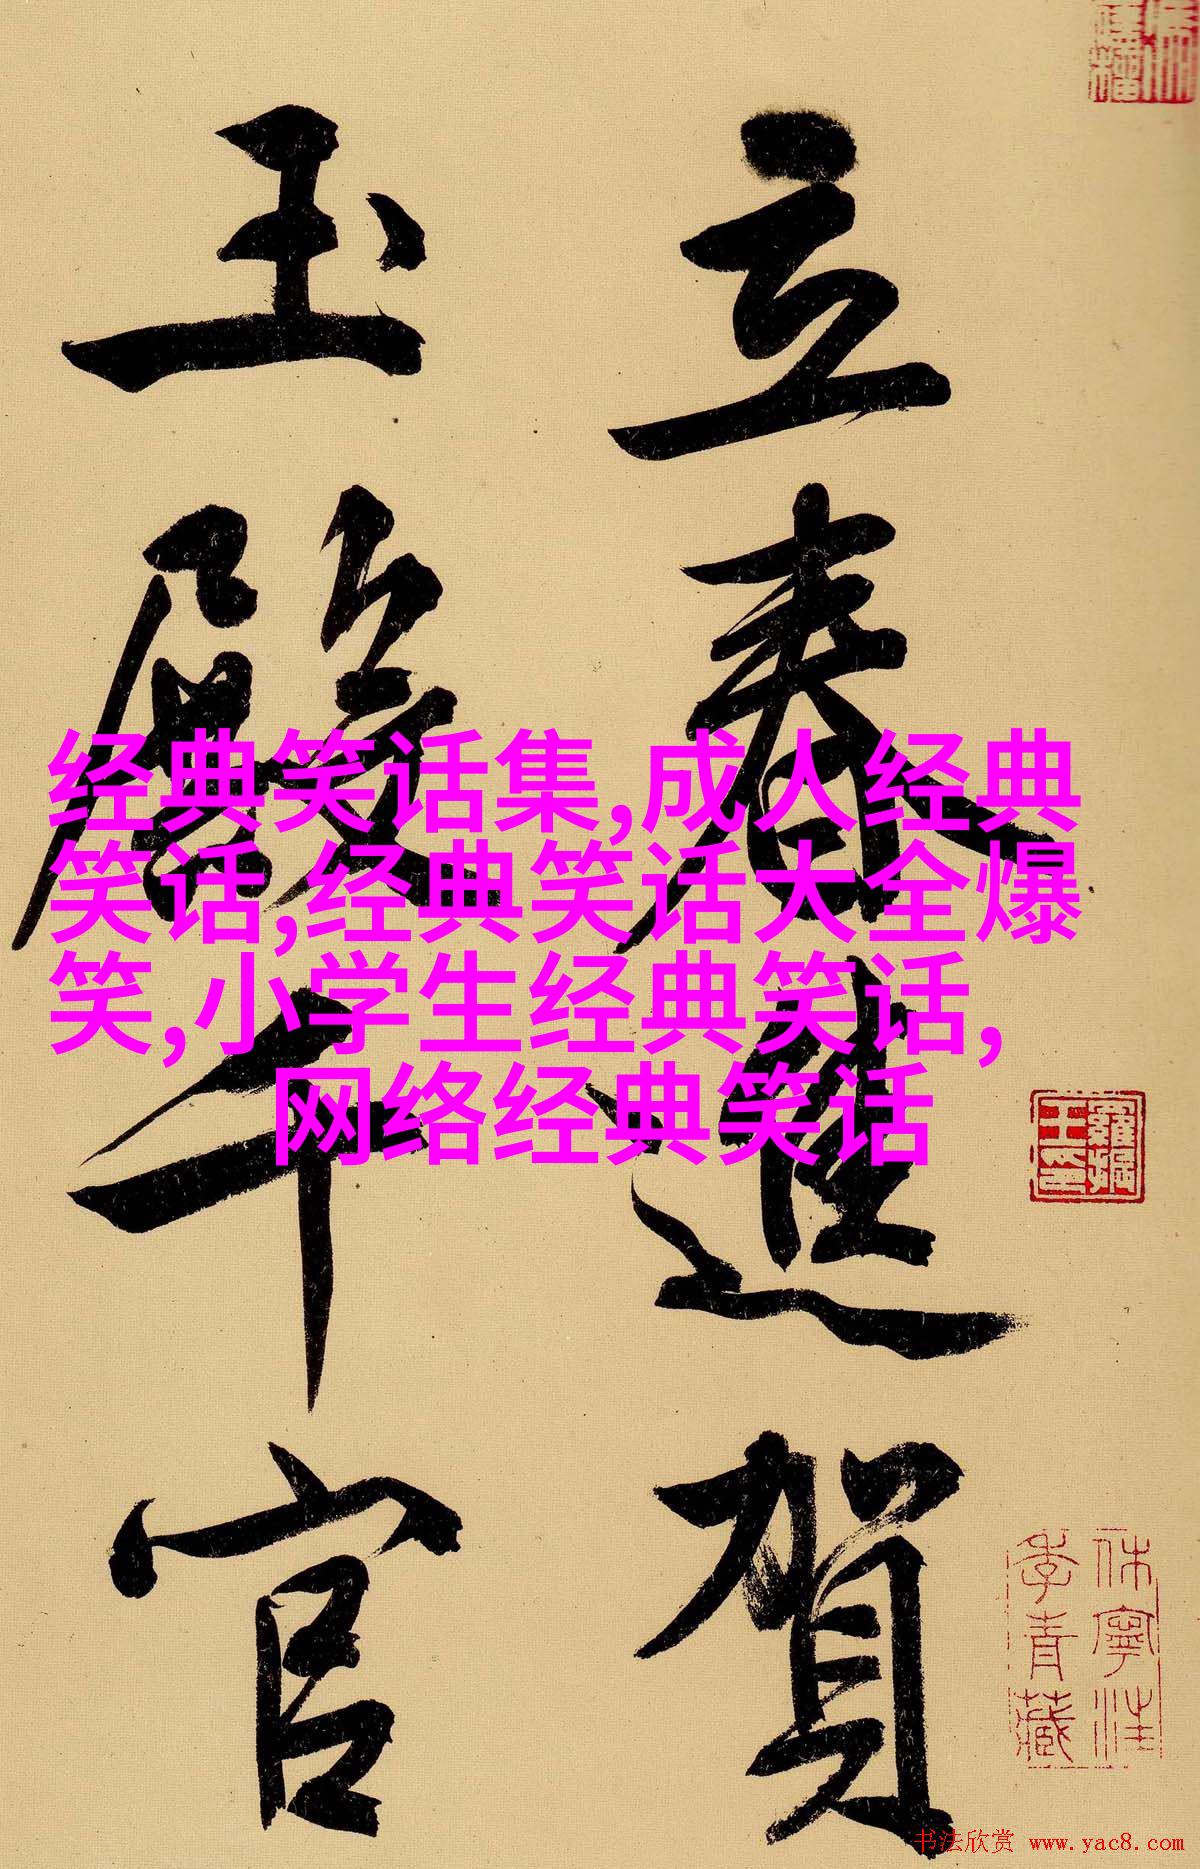 立春進賀
玉殿千官
经典笑话集,成人经典
笑话,经典笑话大全爆
笑,小学生经典笑话,
网络经典笑话
休寧汪
季青藏
书法欣赏 www.yac8.com